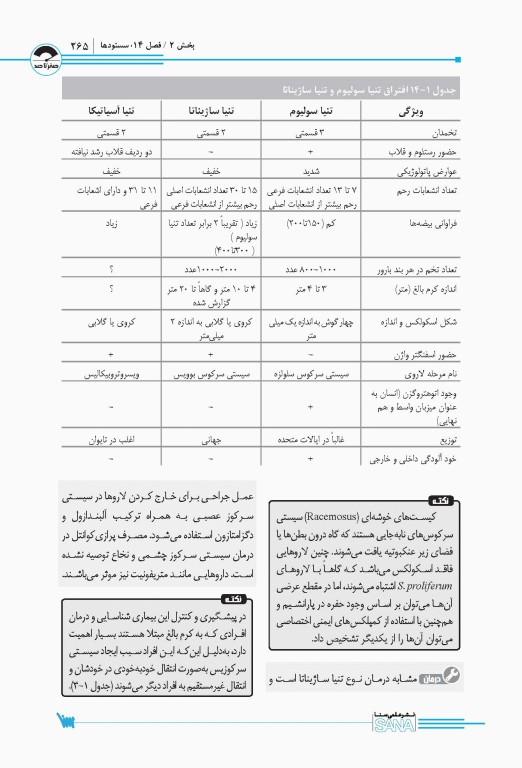 بخش ۲ / فصل ۱۴، سستودها | ۲۶۵
صفر تا صد
جدول ۱-۱۴ افتراق تنیا سولیوم و تنیا ساژیناتا
ویژگی تنیا سولیوم تنیا ساژیناتا تنیا آسیاتیکا
تخمدان ۳ قسمتی ۲ قسمتی ۲ قسمتی
حضور رستلوم و قلاب + – دو ردیف قلاب رشد نیافته
عوارض پاتولوژیکی شدید خفیف خفیف
تعداد انشعابات رحم ۷ تا ۱۳ تعداد انشعابات فرعی ۱۵ تا ۳۰ تعداد انشعابات اصلی ۱۱ تا ۳۱ و دارای اشعابات
رحم بیشتر از انشعابات اصلی رحم بیشتر از انشعابات فرعی فرعی
فراوانی بیضه‌ها کم (۱۵۰تا۲۰۰) زیاد ( تقریباً ۲ برابر تعداد تنیا زیاد
سولیوم )
( ۳۰۰تا۴۰۰)
تعداد تخم در هر بند بارور ۸۰۰-۱۰۰۰ عدد ۱۰۰۰-۲۰۰۰عدد ؟
اندازه کرم بالغ (متر) ۳ تا ۴ متر ۴ تا ۱۰ متر و گاهاً تا ۲۰ متر ؟
گزارش شده
شکل اسکولکس و اندازه چهار گوش به اندازه یک میلی کروی یا گلابی به اندازه ۲ کروی یا گلابی
متر میلی‌متر
حضور اسفنگتر واژن – + +
نام مرحله لاروی سیستی سرکوس سلولزه سیستی سرکوس بوویس ویسروتروپیکالیس
وجود اتوهتروگزن (انسان به
عنوان میزبان واسط و هم + – –
نهایی)
توزیع غالباً در ایالات متحده جهانی اغلب در تایوان
خود آلودگی داخلی و خارجی + – –
نکته
کیست‌های خوشه‌ای (Racemosus) سیستی
سرکوس‌های نابه‌جایی هستند که گاه درون بطن‌ها یا
فضای زیر عنکبوتیه یافت می‌شوند. چنین لاروهایی
فاقد اسکولکس می‌باشد کـه گاهـاً بـا لاروهـای
S. proliferum اشتباه می‌شوند، اما در مقطع عرضی
آن‌ها می‌توان بر اساس وجود حفره در پارانشیم و
هم‌چنین با استفاده از کمپلکس‌های ایمنی اختصاصی
می‌توان آن‌ها را از یکدیگر تشخیص داد.
درمان مشابه درمان نوع تنیا ساژیناتا است و
عمـل جراحی بـرای خـارج کـردن لاروها در سیستی
سرکوز عصبی به همراه ترکیب آلبندازول و
دگزامتازون استفاده می‌شود. مصـرف پرازی‌کوانتل در
درمان سیستی سرکوز چشمی و نخاع توصیه نشده
است. داروهایـی ماننـد متریفونیت نیز موثر می‌باشـند.
نکته
در پیشگیری و کنترل این بیماری شناسایی و درمان
افرادی که به کرم بالغ مبتلا هستند بسیار اهمیت
دارد، به‌دلیل این‌که این افراد سبب ایجاد سیستی
سرکوزیس به‌صورت انتقال خودبه‌خودی در خودشان و
انتقال غیرمستقیم به افراد دیگر می‌شوند (جدول ۱-۳).
نشر علمی سنا
SANA